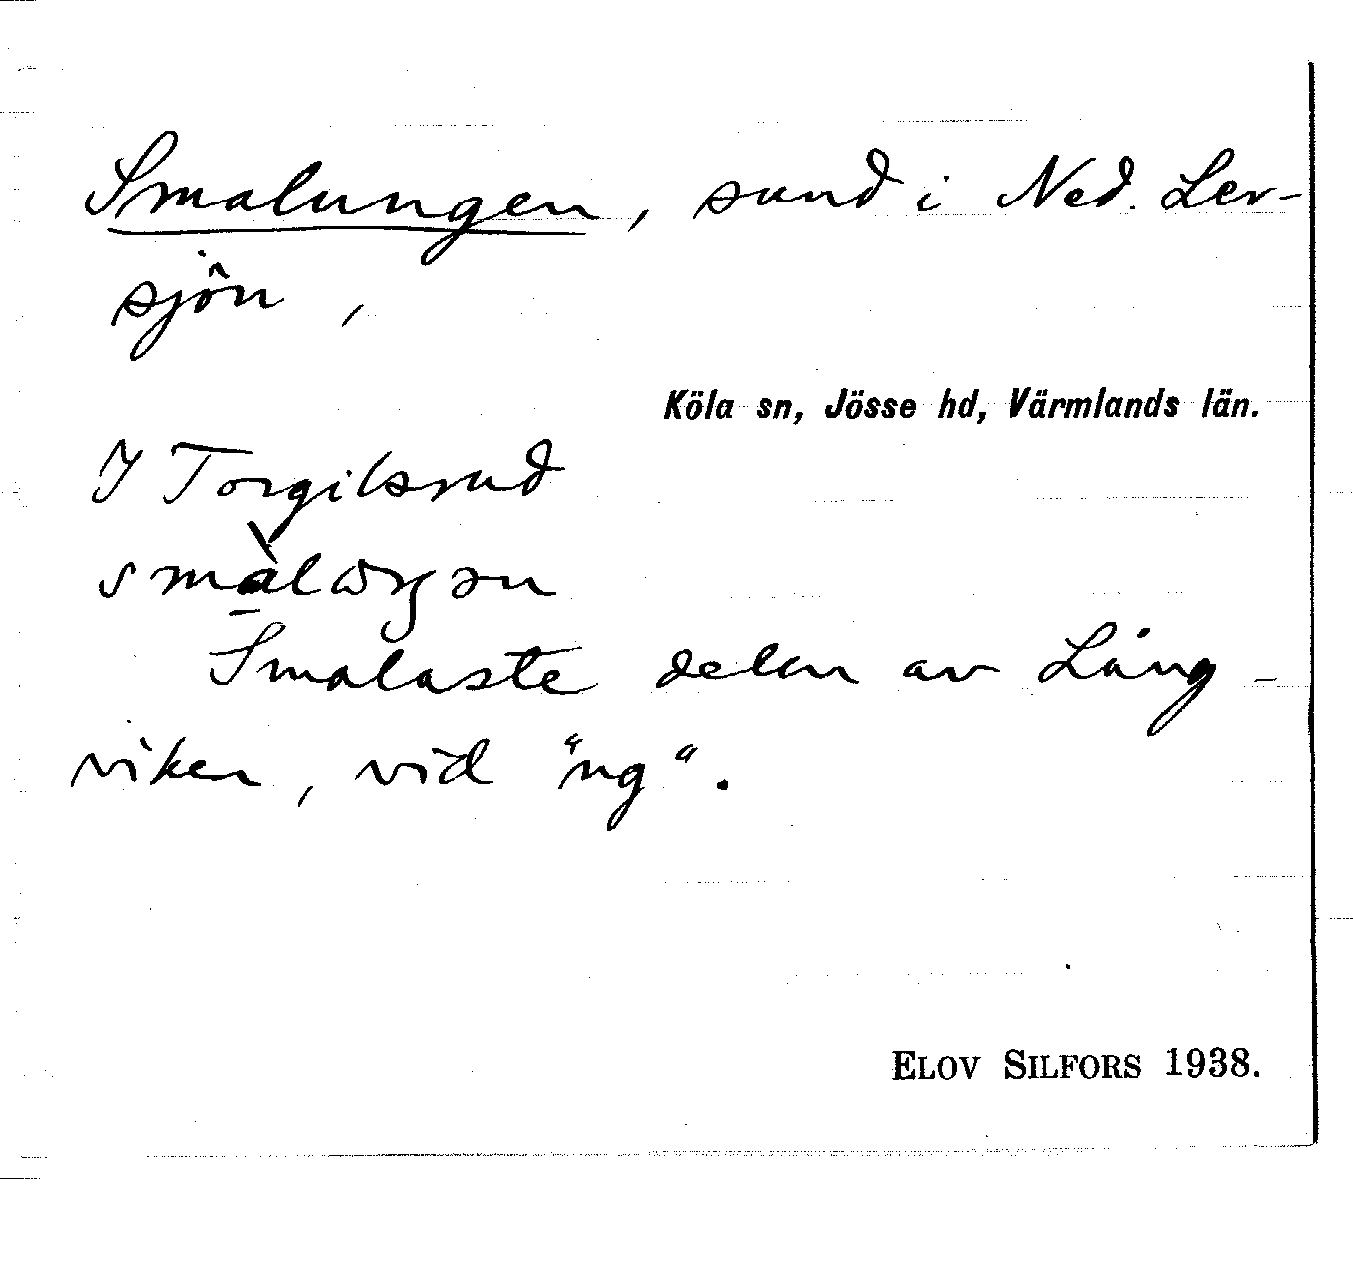 Smalungen, sund i Ned. Ler-
sjön,
Köla sn, Jösse hd, Värmlands län.
I Torgilsrud
Smalaste delen av Lång-
viken, vid "ng".
ELOV SILFORS 1938.